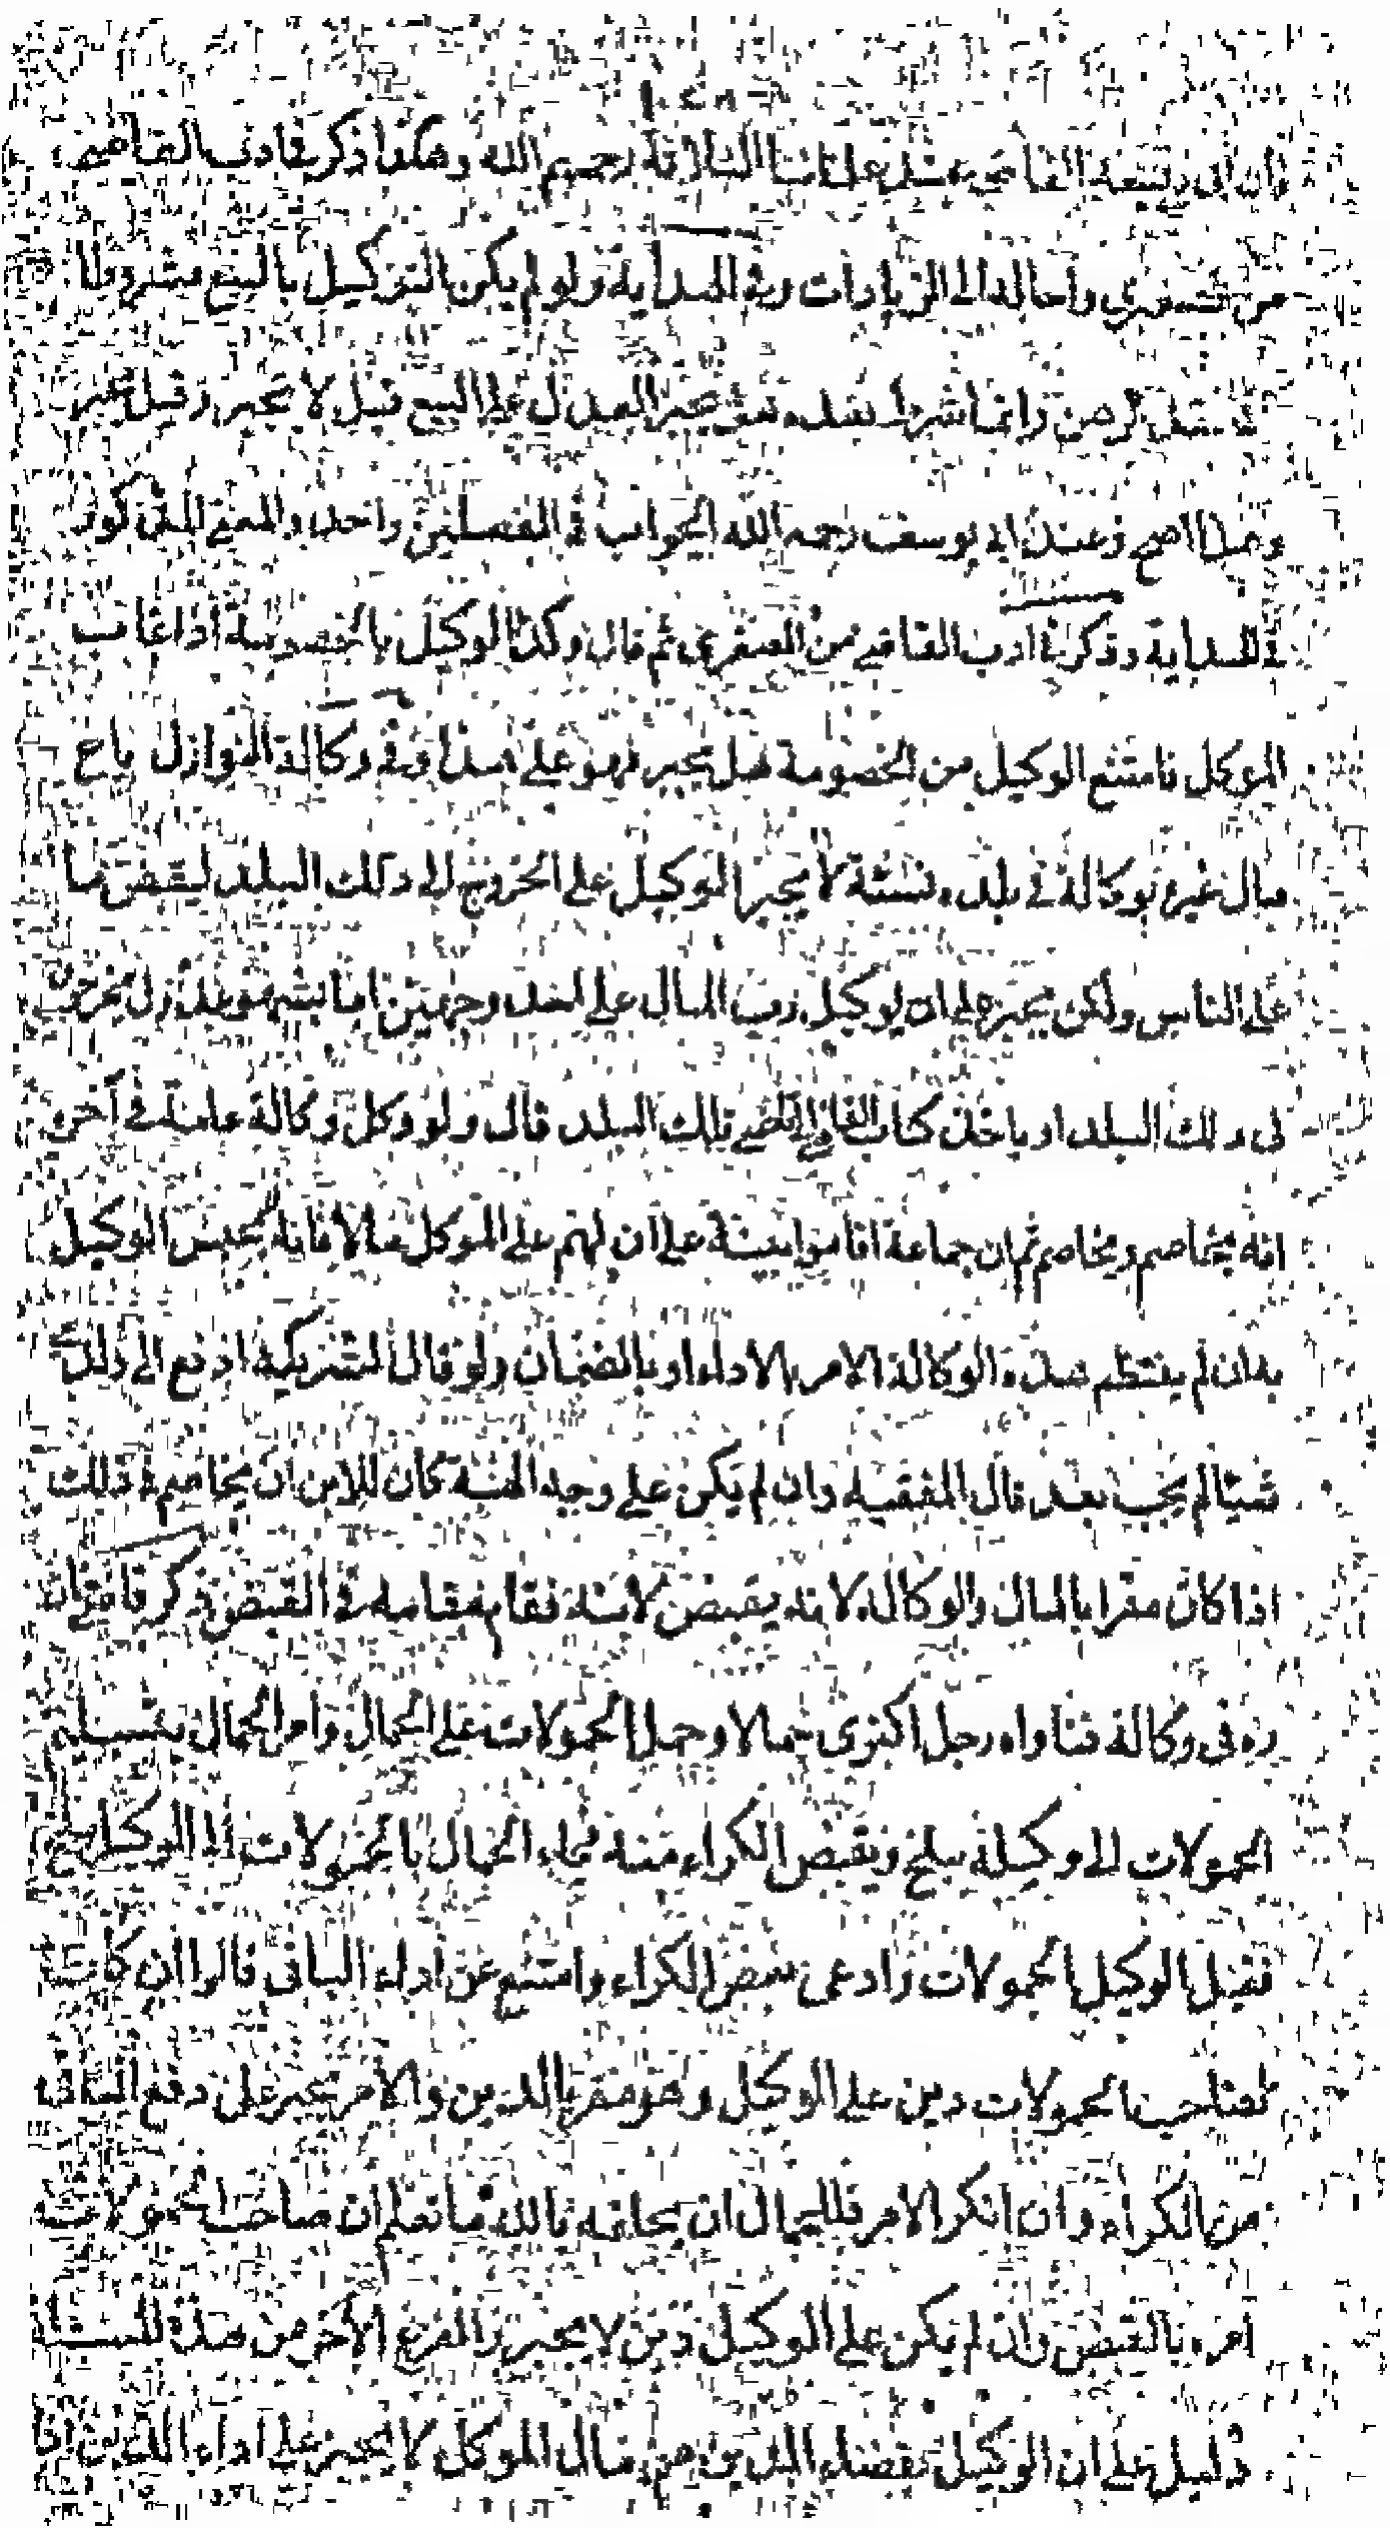 وان ابى دفعه القاضي عند علمائنا الثلاثة رحمهم الله وهكذا ذكر في ادب القاضي
من الصغرى واحاله الى الزيادات وفي الهداية ولو لم يكن التوكيل بالبيع مشروطا
في عقد الرهن وانما شرط بعده يجبر العدل على البيع قيل لا يجبر وقيل يجبر
وهذا اصح وعند ابي يوسف رحمه الله الجواب في الفصلين واحد والمعنى المذكور
في الهداية وذكر في ادب القاضي من الصغرى ثم قال وكذا الوكيل بالخصومة اذا غاب
الموكل فامتنع الوكيل من الخصومة هل يجبر فهو على هذا وفي وكالة النوازل باع
مال غيره بوكالة في بلده نسئة لا يجبر الوكيل على الخروج الى ذلك البلد ليقبض ما
على الناس ولكن يجبر على ان يوكل رب المال على احد وجهين اما يشهد على
في ذلك البلد او ياخذ كتاب القاضي الى تلك البلد قال ولو وكل وكالة عامة في آخره
انه يخاصم ويخاصم ثم ان جماعة اقاموا بينة على ان لهم على الموكل مالا فانه يحبس الوكيل
به ان لم ينتظم هذه الوكالة الامر بالاداء او بالضمان ولو قال لشريكه ادفع الى ذلك
شيئا لم يجب بعد قال الفقيه وان لم يكن على وجه الهبة كان للابن ان يخاصم في ذلك
اذا كان مقرا بالمال والوكالة لانه يقبض لابنه فقام مقامه في القبض ذكر قاضيخان
ره في وكالة فتاواه رجل اكترى جمالا وحمل الحمولات على الجمال وامر الجمال بتسليم
الحمولات الى وكيله ببلخ ويقبض الكراء منه فجاء الجمال بالحمولات الى الوكيل ببلخ
فقبل الوكيل الحمولات وادى بعض الكراء وامتنع عن اداء الباقي قالوا ان كان
لصاحب الحمولات دين على الوكيل وهو مقر بالدين والامر يجبر على دفع الباقي
من الكراء وان انكر الامر فللجمال ان يحلفه بالله ما تعلم ان صاحب الحمولات
امره بالقبض وان لم يكن على الوكيل دين لا يجبر والفرع الآخر من هذه المسئلة
دليل على ان الوكيل بقضاء الدين من مال الموكل لا يجبر على اداء الدين اذا